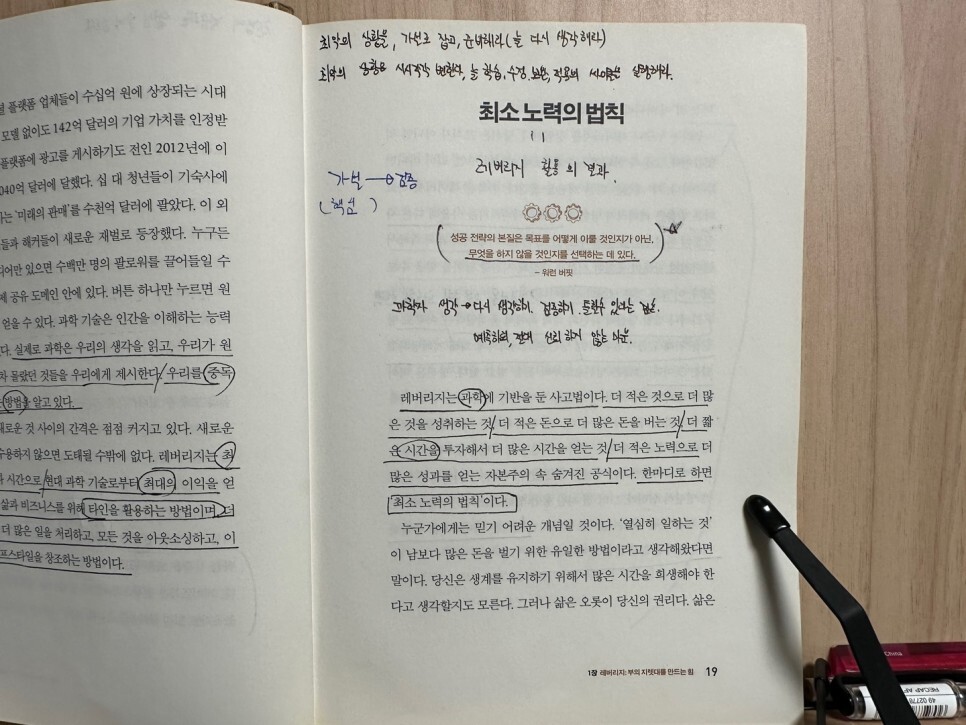 플랫폼 업체들이 수십억 원에 상장되는 시대
모델 없이도 142억 달러의 기업 가치를 인정받
플랫폼에 광고를 게시하기도 전인 2012년에 이
040억 달러에 달했다. 십 대 청년들이 기숙사에
는 '미래의 판매'를 수천억 달러에 팔았다. 이 외
들과 해커들이 새로운 재벌로 등장했다. 누구든
디어만 있으면 수백만 명의 팔로워를 끌어들일 수
공유 도메인 안에 있다. 버튼 하나만 누르면 원
얻을 수 있다. 과학 기술은 인간을 이해하는 능력
다. 실제로 과학은 우리의 생각을 읽고, 우리가 원
차 몰랐던 것들을 우리에게 제시한다. 우리를 중독
방법을 알고 있다.
새로운 것 사이의 간격은 점점 커지고 있다. 새로운
수용하지 않으면 도태될 수밖에 없다. 레버리지는 최
시간으로 현대 과학 기술로부터 최대의 이익을 얻
삶과 비즈니스를 위해 타인을 활용하는 방법이며, 더
더 많은 일을 처리하고, 모든 것을 아웃소싱하고, 이
프스타일을 창조하는 방법이다.
최악의 상황을, 가설로 잡고, 준비해라 (늘 다시 생각해라)
상황은 시시각각 변한다, 늘 학습, 수정, 보완, 적용의 싸이클을 실행해라.
최소 노력의 법칙
레버리지 활용의 결과.
가설 → 검증
(핵심)
성공 전략의 본질은 목표를 어떻게 이룰 것인지가 아닌,
무엇을 하지 않을 것인지를 선택하는 데 있다.
– 워런 버핏
과학자 생각 → 다시 생각하기, 검증하기, 틀릴수 있다는
않는 마음.
레버리지는 과학에 기반을 둔 사고법이다. 더 적은 것으로 더 많
은 것을 성취하는 것, 더 적은 돈으로 더 많은 돈을 버는 것, 더 짧
은 시간을 투자해서 더 많은 시간을 얻는 것, 더 적은 노력으로 더
많은 성과를 얻는 자본주의 속 숨겨진 공식이다. 한마디로 하면
'최소 노력의 법칙'이다.
누군가에게는 믿기 어려운 개념일 것이다. '열심히 일하는 것'
이 남보다 많은 돈을 벌기 위한 유일한 방법이라고 생각해왔다면
말이다. 당신은 생계를 유지하기 위해서 많은 시간을 희생해야 한
다고 생각할지도 모른다. 그러나 삶은 오롯이 당신의 권리다. 삶은
1장 레버리지: 부의 지렛대를 만드는 힘 19
China
RECAP AF
49 02778